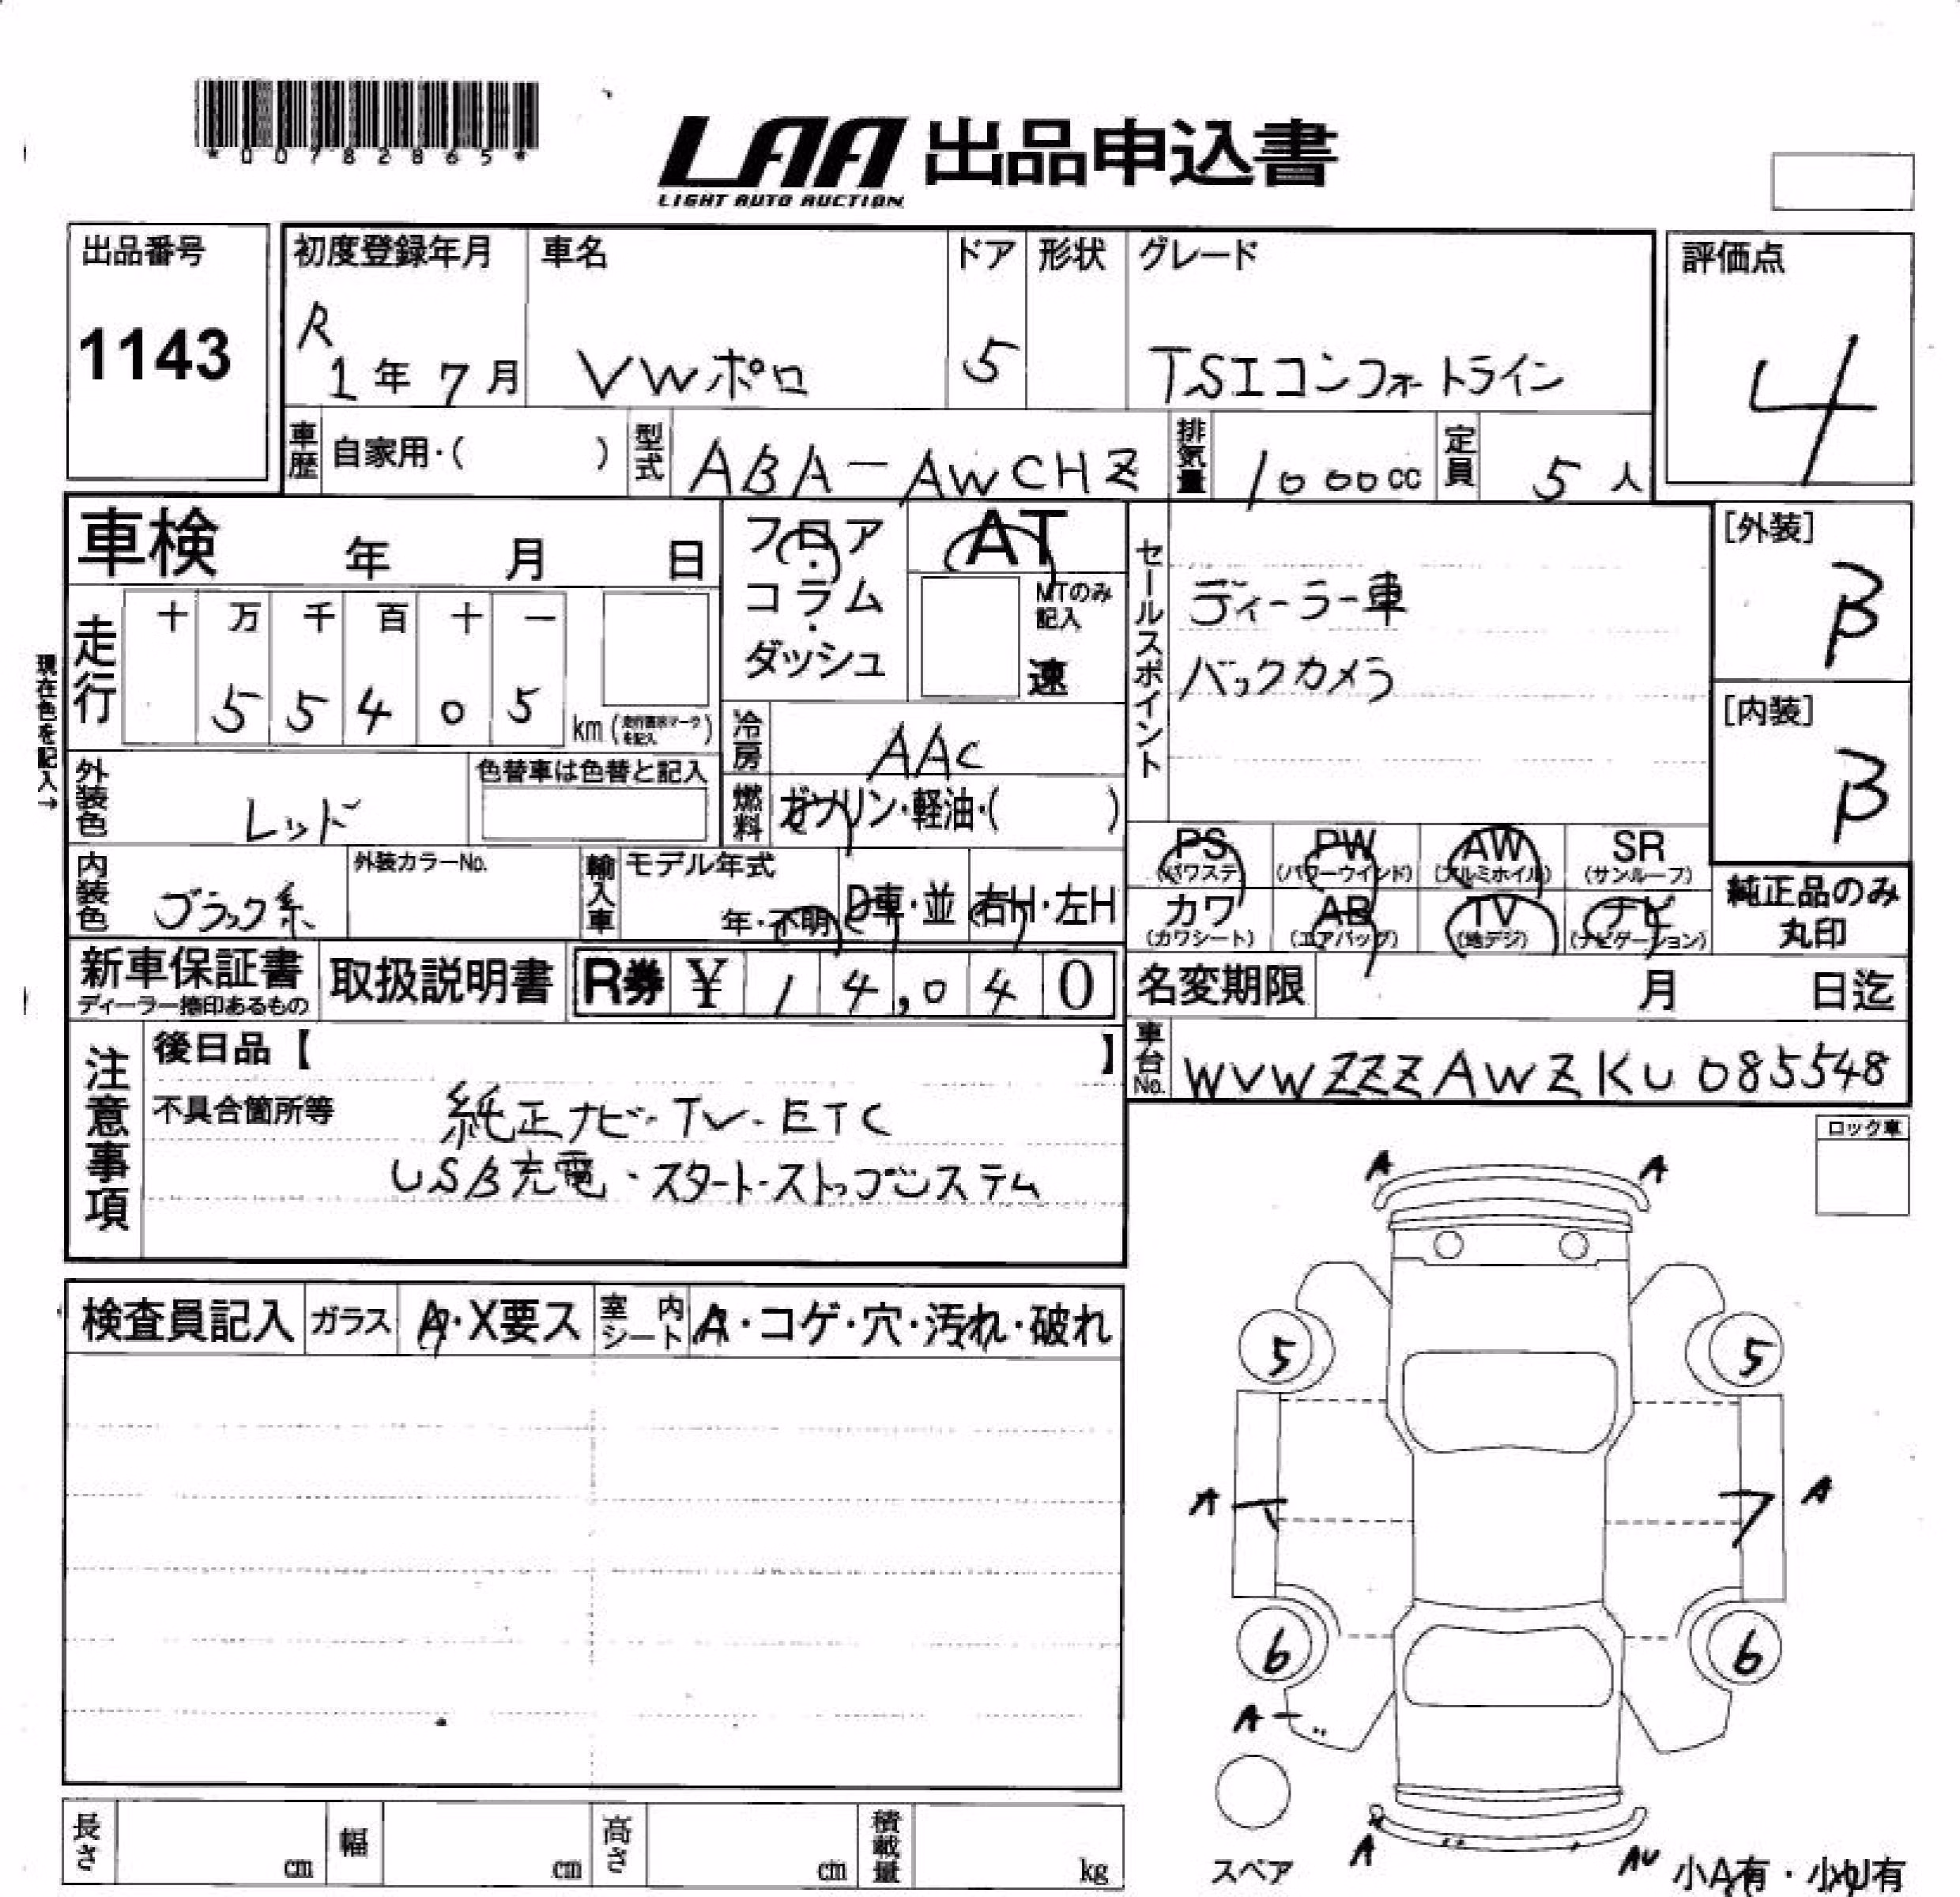 *00782865*
LAA 出品申込書
LIGHT AUTO AUCTION
出品番号
1143
初度登録年月
R 1年 7月
車名
VWポロ
ドア
5
形状
グレード
TSIコンフォートライン
評価点
4
車歴 自家用・( )
型式 ABA-AWCHZ
排気量 1000cc
定員 5人
車検 年 月 日
フロア・コラム・ダッシュ
AT
MTのみ記入
速
セールスポイント
ディーラー車
バックカメラ
[外装]
B
[内装]
B
現在色を記入→
走行
十 万 千 百 十 一
5 5 4 0 5
km
冷房 AAC
外装色 レッド
色替車は色替と記入
燃料 ガソリン・軽油・( )
内装色 ブラック系
外装カラーNo.
輸入車
モデル年式
年・不明
D車・並
右H・左H
PS (パワステ)
PW (パワーウインド)
AW (アルミホイル)
SR (サンルーフ)
カワ (カワシート)
AB (エアバッグ)
TV (地デジ)
ナビ (ナビゲーション)
純正品のみ
丸印
新車保証書
ディーラー捺印あるもの
取扱説明書
R券 ¥ 14,040
名変期限 月 日迄
車台No. WVWZZZAWZKU085548
注意事項
後日品【 】
不具合箇所等
純正ナビ・TV・ETC
USB充電・スタート・ストップシステム
ロック車
検査員記入
ガラス A・X要ス
室内シート A・コゲ・穴・汚れ・破れ
A A
5 5
A A
6 6
A
A AU
スペア
小A有・小U有
長さ cm
幅 cm
高さ cm
積載量 kg